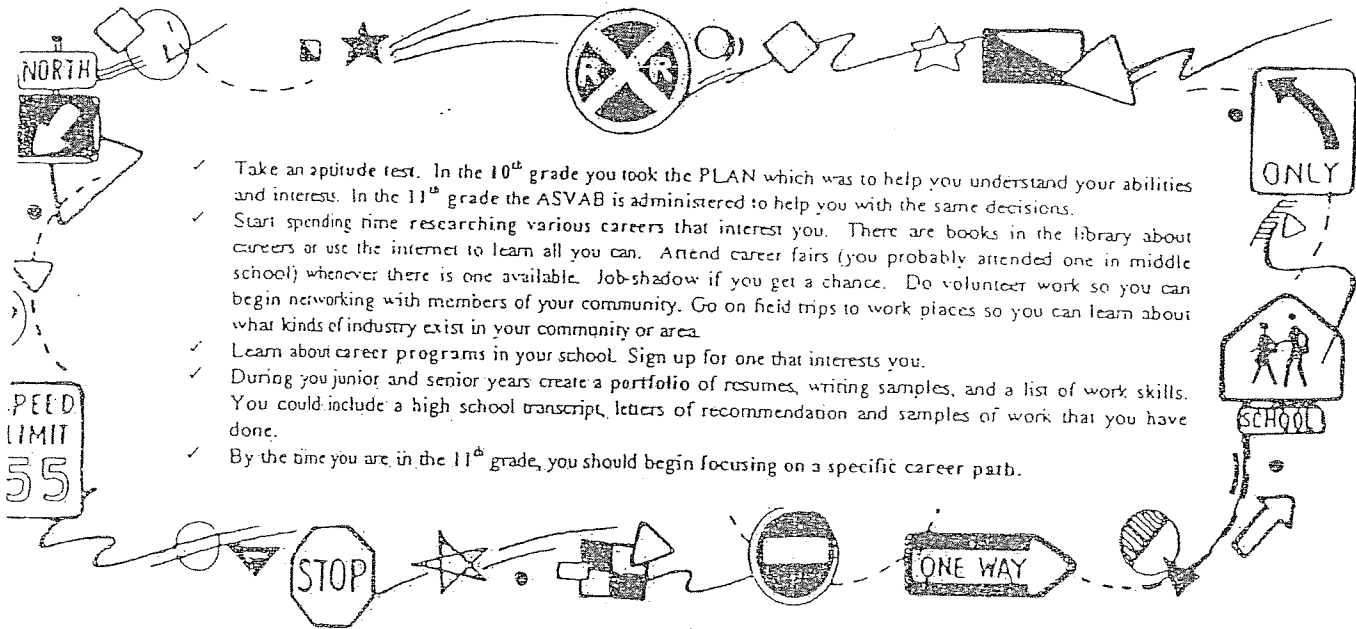 NORTH
R R
ONLY
✓ Take an aptitude test. In the 10th grade you took the PLAN which was to help you understand your abilities
and interests. In the 11th grade the ASVAB is administered to help you with the same decisions.
✓ Start spending time researching various careers that interest you. There are books in the library about
careers or use the internet to learn all you can. Attend career fairs (you probably attended one in middle
school) whenever there is one available. Job-shadow if you get a chance. Do volunteer work so you can
begin networking with members of your community. Go on field trips to work places so you can learn about
what kinds of industry exist in your community or area.
✓ Learn about career programs in your school. Sign up for one that interests you.
✓ During you junior and senior years create a portfolio of resumes, writing samples, and a list of work skills.
You could include a high school transcript, letters of recommendation and samples of work that you have
done.
✓ By the time you are in the 11th grade, you should begin focusing on a specific career path.
PEED
LIMIT
55
SCHOOL
STOP
ONE WAY